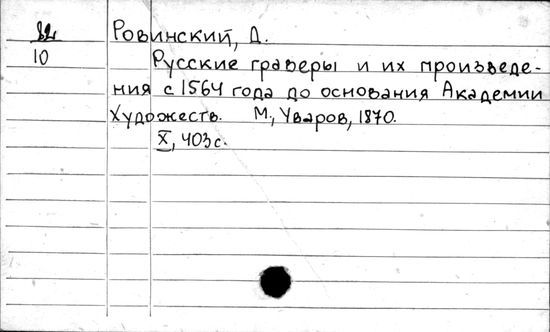 Ровинский, Д.
10
Русские граверы и их произведе-
ния с 1564 года до основания Академии
Художеств. М., Уваров, 1870.
X, 403 с.